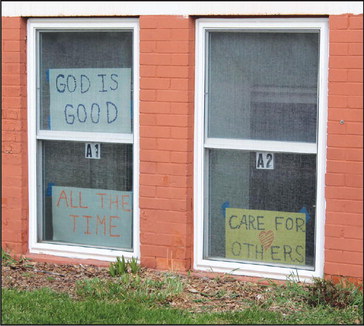 GOD IS
GOOD
A1
ALL THE
TIME
A2
CARE FOR
OTHERS